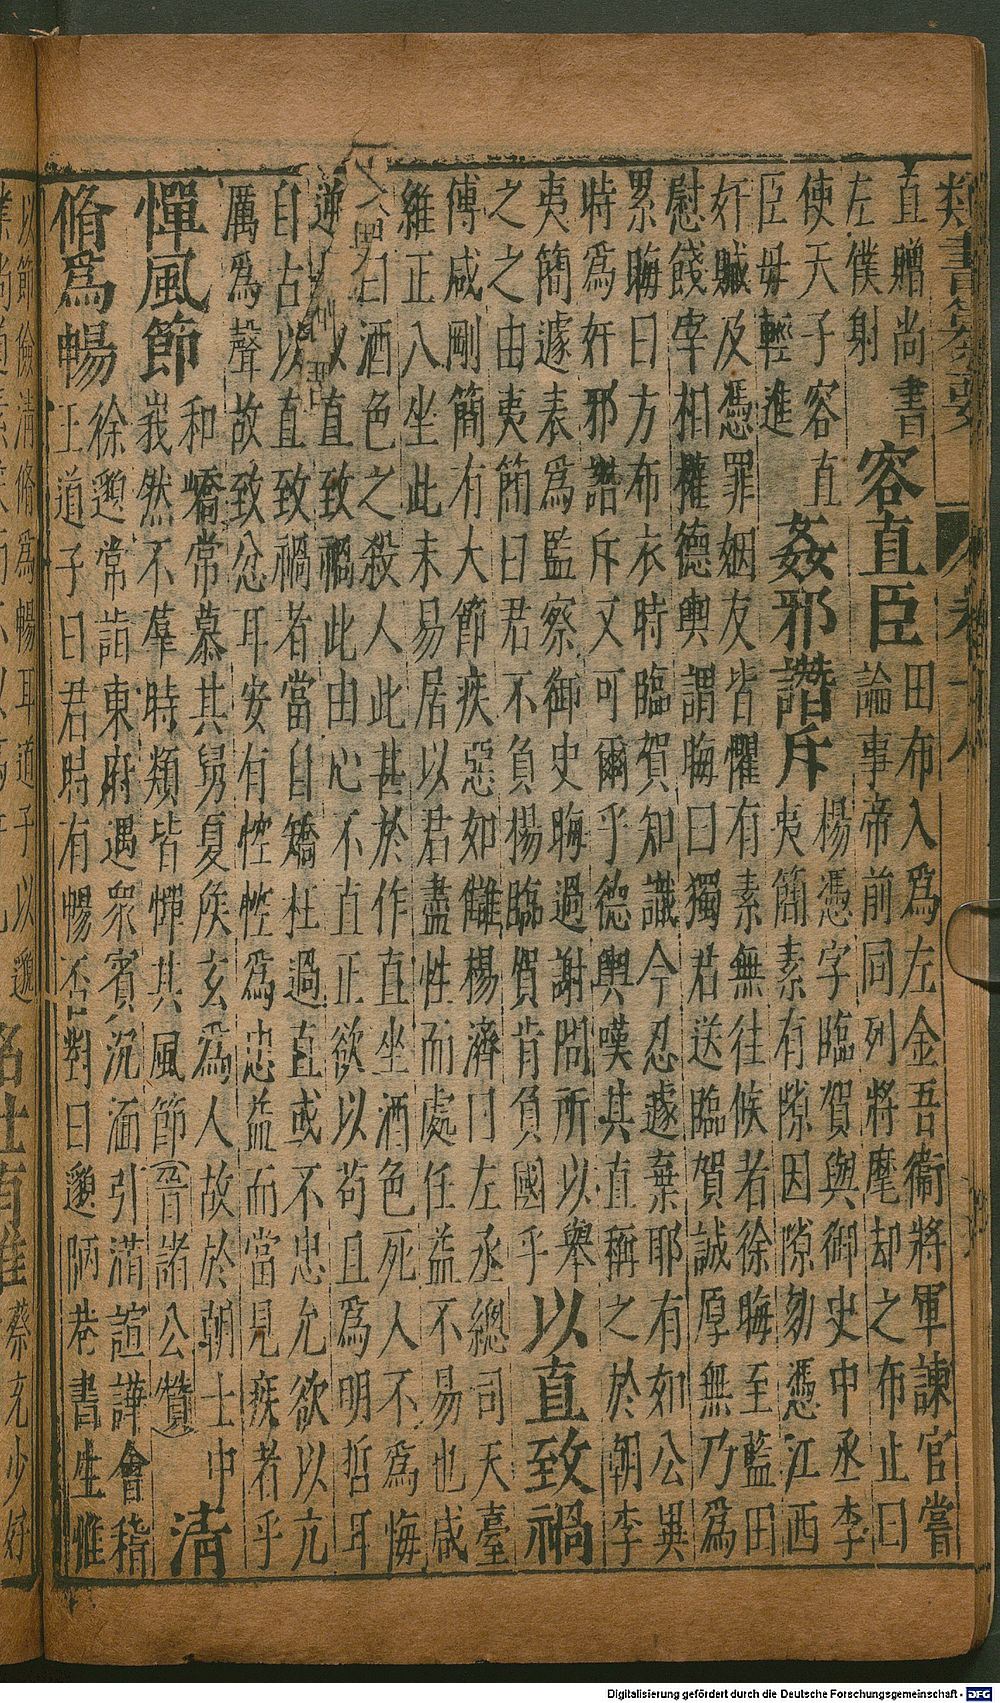 類書纂要 卷十八
直贈尚書
左僕射
容直臣
田布入為左金吾衛將軍諫官嘗
論事帝前同列將麾却之布止曰
使天子容直
臣毋輕進
姦邪譖斥
楊憑字臨賀與御史中丞李
夷簡素有隙因隙劾憑江西
奸贓及憑罪姻友皆懼有素無往候者徐晦至藍田
慰餞宰相權德輿謂晦曰獨君送臨賀誠厚無乃為
累晦曰方布衣時臨賀知識今忍遽棄耶有如公異
時為奸邪譖斥又可爾乎德輿嘆其直稱之於朝李
夷簡遽表為監察御史晦過謝問所以舉
之之由夷簡曰君不負楊臨賀肯負國乎
以直致禍
傅咸剛簡有大節疾惡如讎楊濟曰左丞總司天臺
維正八坐此未易居以君盡性而處任益不易也咸
曰酒色之殺人此甚於作直坐酒色死人不為悔
逆以直致禍此由心不直正欲以苟且為明哲耳
自古以直致禍者當自矯枉過直或不忠允欲以亢
厲為聲故致忿耳安有悾悾為忠益而當見疾者乎
憚風節
和嶠常慕其舅夏侯玄為人故於朝士中
峩然不羣時類皆憚其風節(晉諸公贊)
清
脩為暢
徐邈常詣東府遇眾賓沉湎引滿諠譁會稽
王道子曰君時有暢否對曰邈陋巷書生惟
以節儉清脩為暢耳道子以邈
蔡充少好
Digitalisierung gefördert durch die Deutsche Forschungsgemeinschaft - DFG